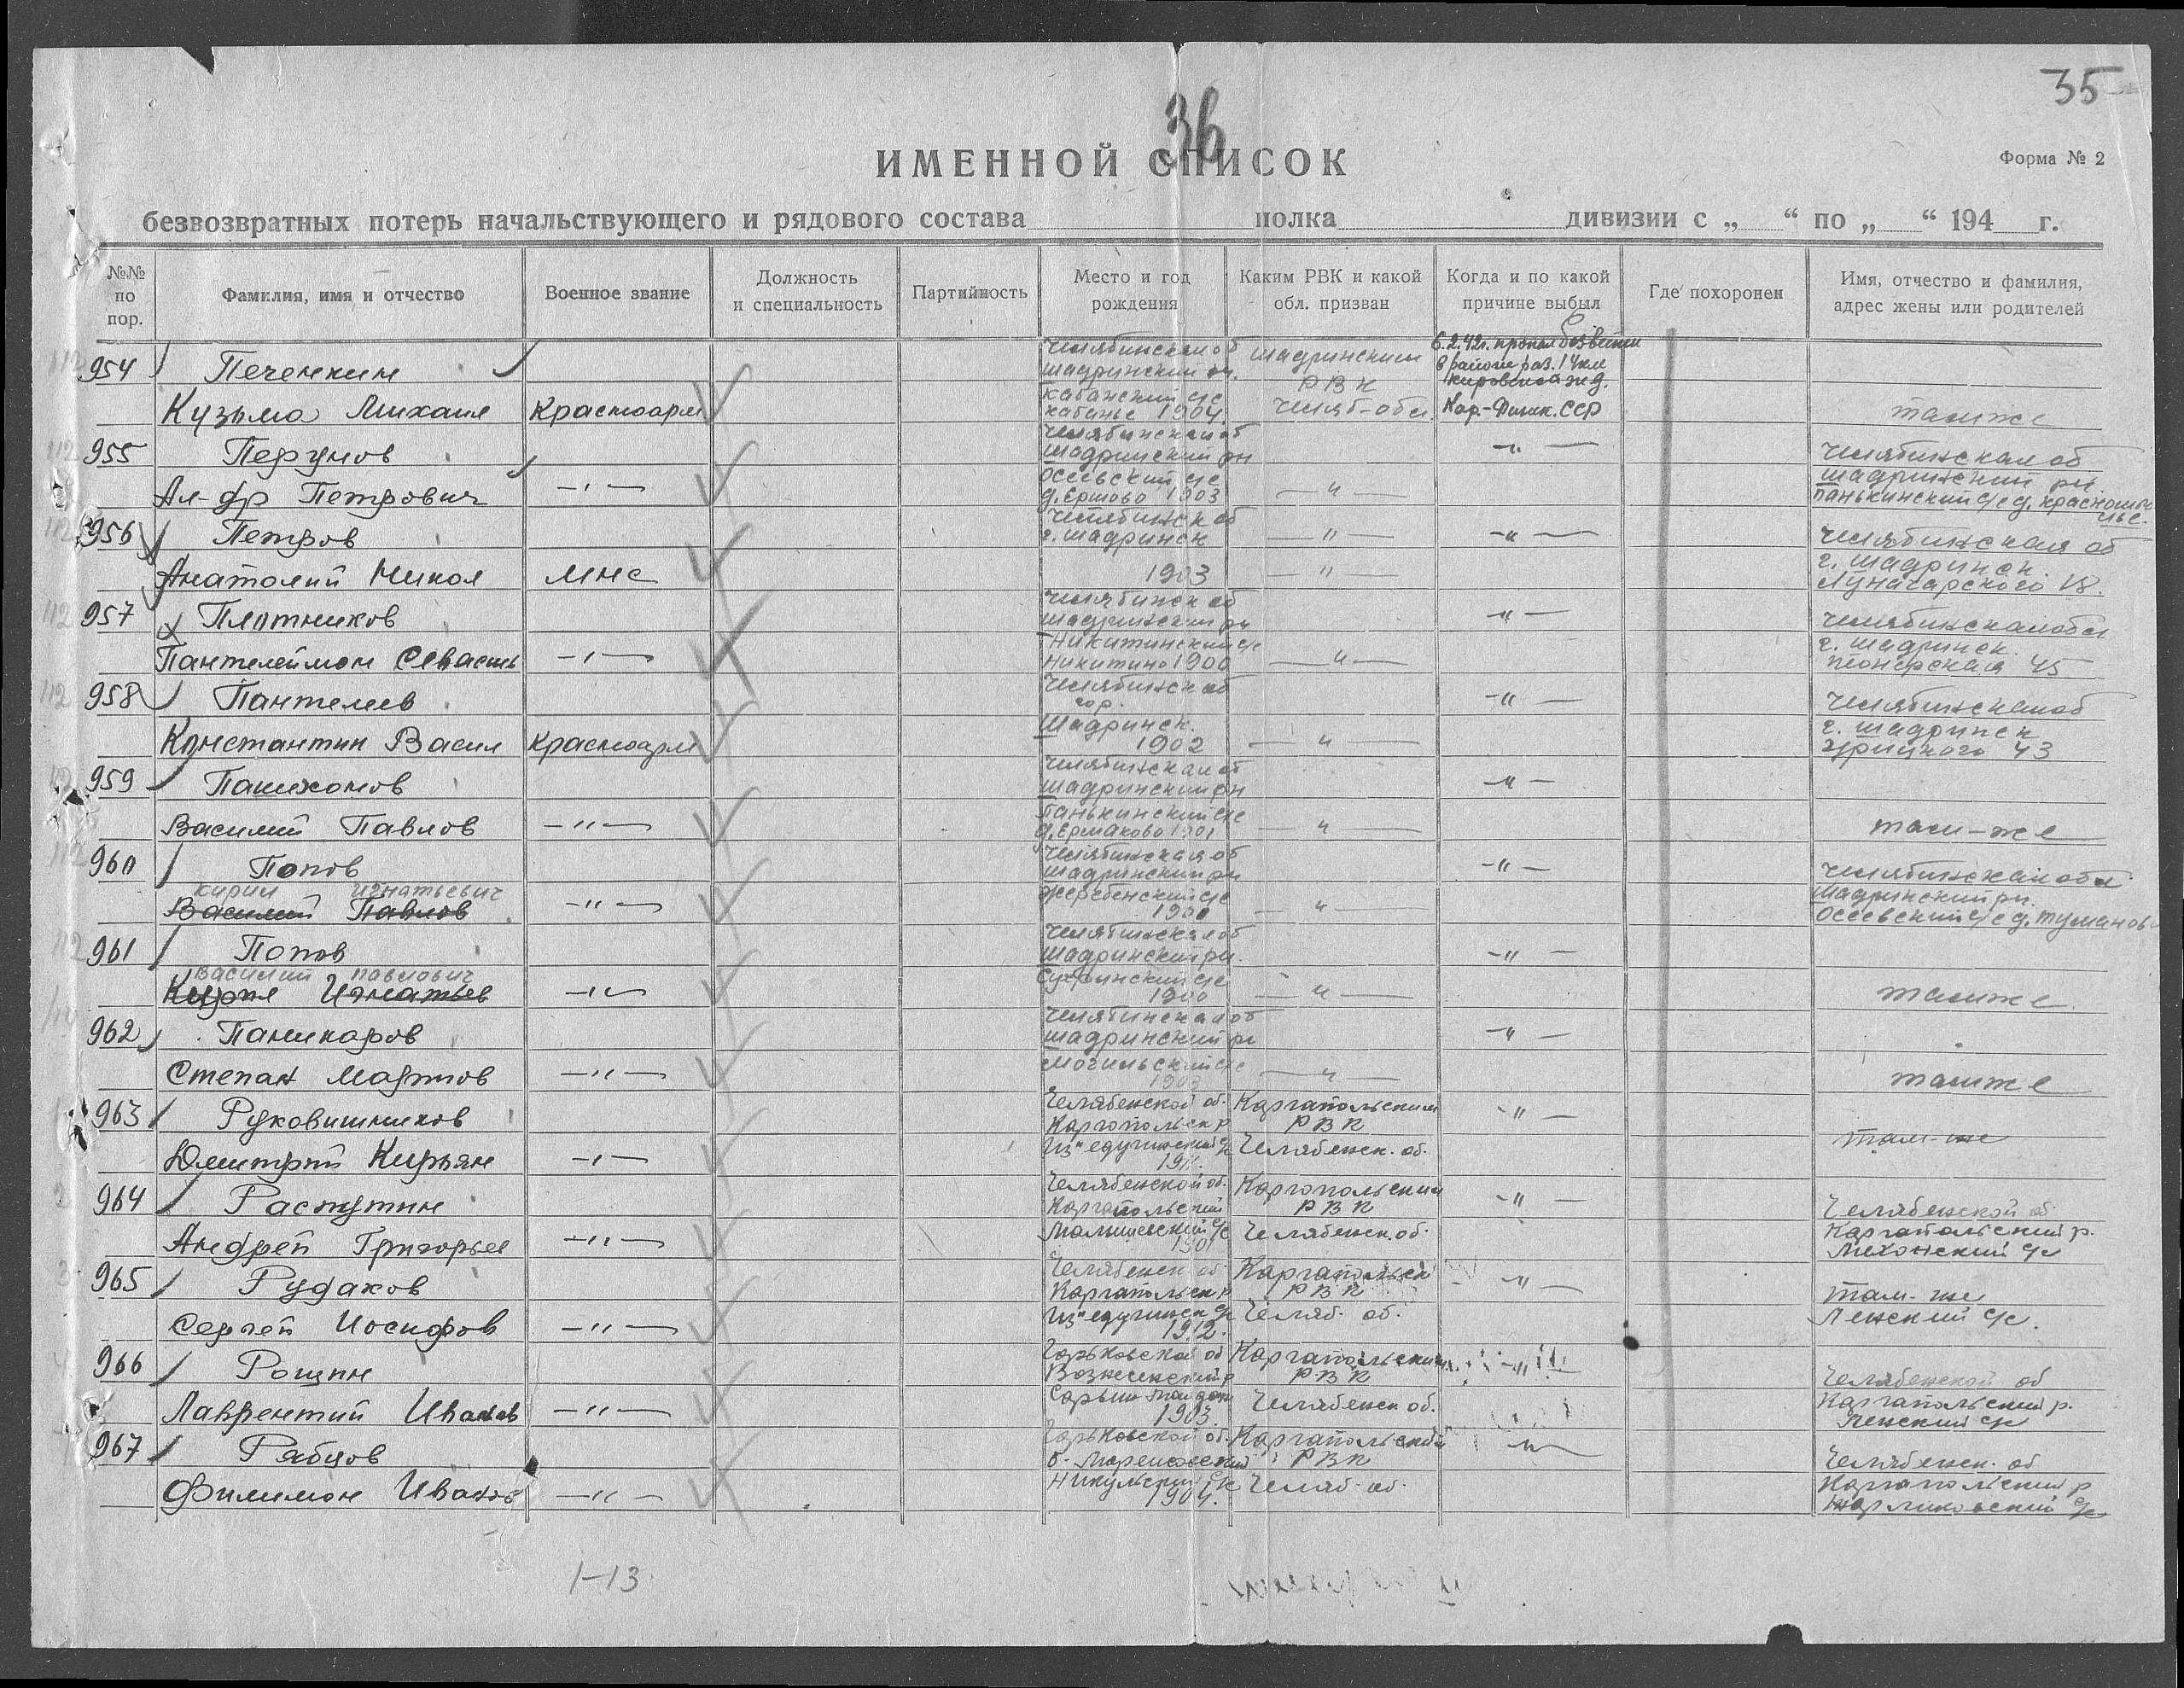 35
36
ИМЕННОЙ СПИСОК
Форма № 2
безвозвратных потерь начальствующего и рядового состава полка дивизии с „ “ по „ “ 194 г.
№№ по пор.
Фамилия, имя и отчество
Военное звание
Должность и специальность
Партийность
Место и год рождения
Каким РВК и какой обл. призван
Когда и по какой причине выбыл
Где похоронен
Имя, отчество и фамилия, адрес жены или родителей
954 Печенкин
Кузьма Михаил Красноарм
Челябинская об
Шадринский рн.
Кабанский с/с
Кабанье 1904
Шадринским
РВК
Челяб-обл.
6.2.42г. пропал без вести
в районе раз. 14 км
Кировской ж.д.
Кар.-Финск. ССР
там же
955 Перунов
Ал-др Петрович -"-
Челябинская об
Шадринский рн
Осеевский с/с
д. Ершово 1903
-"-
-"-
Челябинская об
Шадринский рн.
Панькинский с/с д.
956 Петров
Анатолий Никол МНС
Челябинск об
г. Шадринск
1903
-"-
-"-
-"-
Челябинская об
г. Шадринск
Луначарского 18.
957 Плотников
Пантелеймон Севасть -"-
Челябинск об
Шадринский рн
Никитинский с/с
Никитино 1900
-"-
-"-
Челябинская обл
г. Шадринск.
Пионерская 45
958 Пантелеев
Константин Васил Красноарм
Челябинск об
гор.
Шадринск.
1902
-"-
-"-
Челябинская об
г. Шадринск
Урицкого 43
959 Пашихонов
Василий Павлов -"-
Челябинская об
Шадринский рн
Панькинский с/с
д. Ермаково 1901
-"-
-"-
там-же
960 Попов
Кирил Игнатьевич
Василий Павлов -"-
Челябинская об
Шадринский рн
1900
-"-
-"-
Челябинская обл
Шадринский рн.
Осеевский с/с д. Туманов
961 Попов
Василий Павлович
Кирил Игнатьев -"-
Челябинская об
Шадринский рн.
1900
-"-
-"-
там же
962 Паникаров
Степан Мартов -"-
Челябинская об
Шадринский рн
Могильский с/с
1903
-"-
-"-
там же
963 Руковишников
Дмитрий Кирьян -"-
Челябенской об.
Каргопольск р
1911.
Каргапольским
РВК
Челябенск. об.
-"-
там-же
964 Распутин
Андрей Григорьев -"-
Челябенской об.
Каргапольский
1901
Каргопольским
РВК
Челябенск. об.
-"-
Челябенской об.
Каргапольский р.
Мехонский с/с
965 Рудаков
Сергей Иосифов -"-
Челябенск об
Каргапольск р
1912.
Каргапольск
РВК
Челяб. об.
-"-
там-же
966 Рощин
Лаврентий Иванов -"-
Горьковской об
Вознесенский р
1903.
Каргапольским
РВК
Челябенск об.
-"-
Челябенской об
Каргапольский р.
967 Рябцов
Филимон Иванов -"-
Горьковской об.
Никульский с/с
1904.
Каргапольский
РВК
Челяб. об.
-"-
Челябенск. об
Каргапольский р
1-13